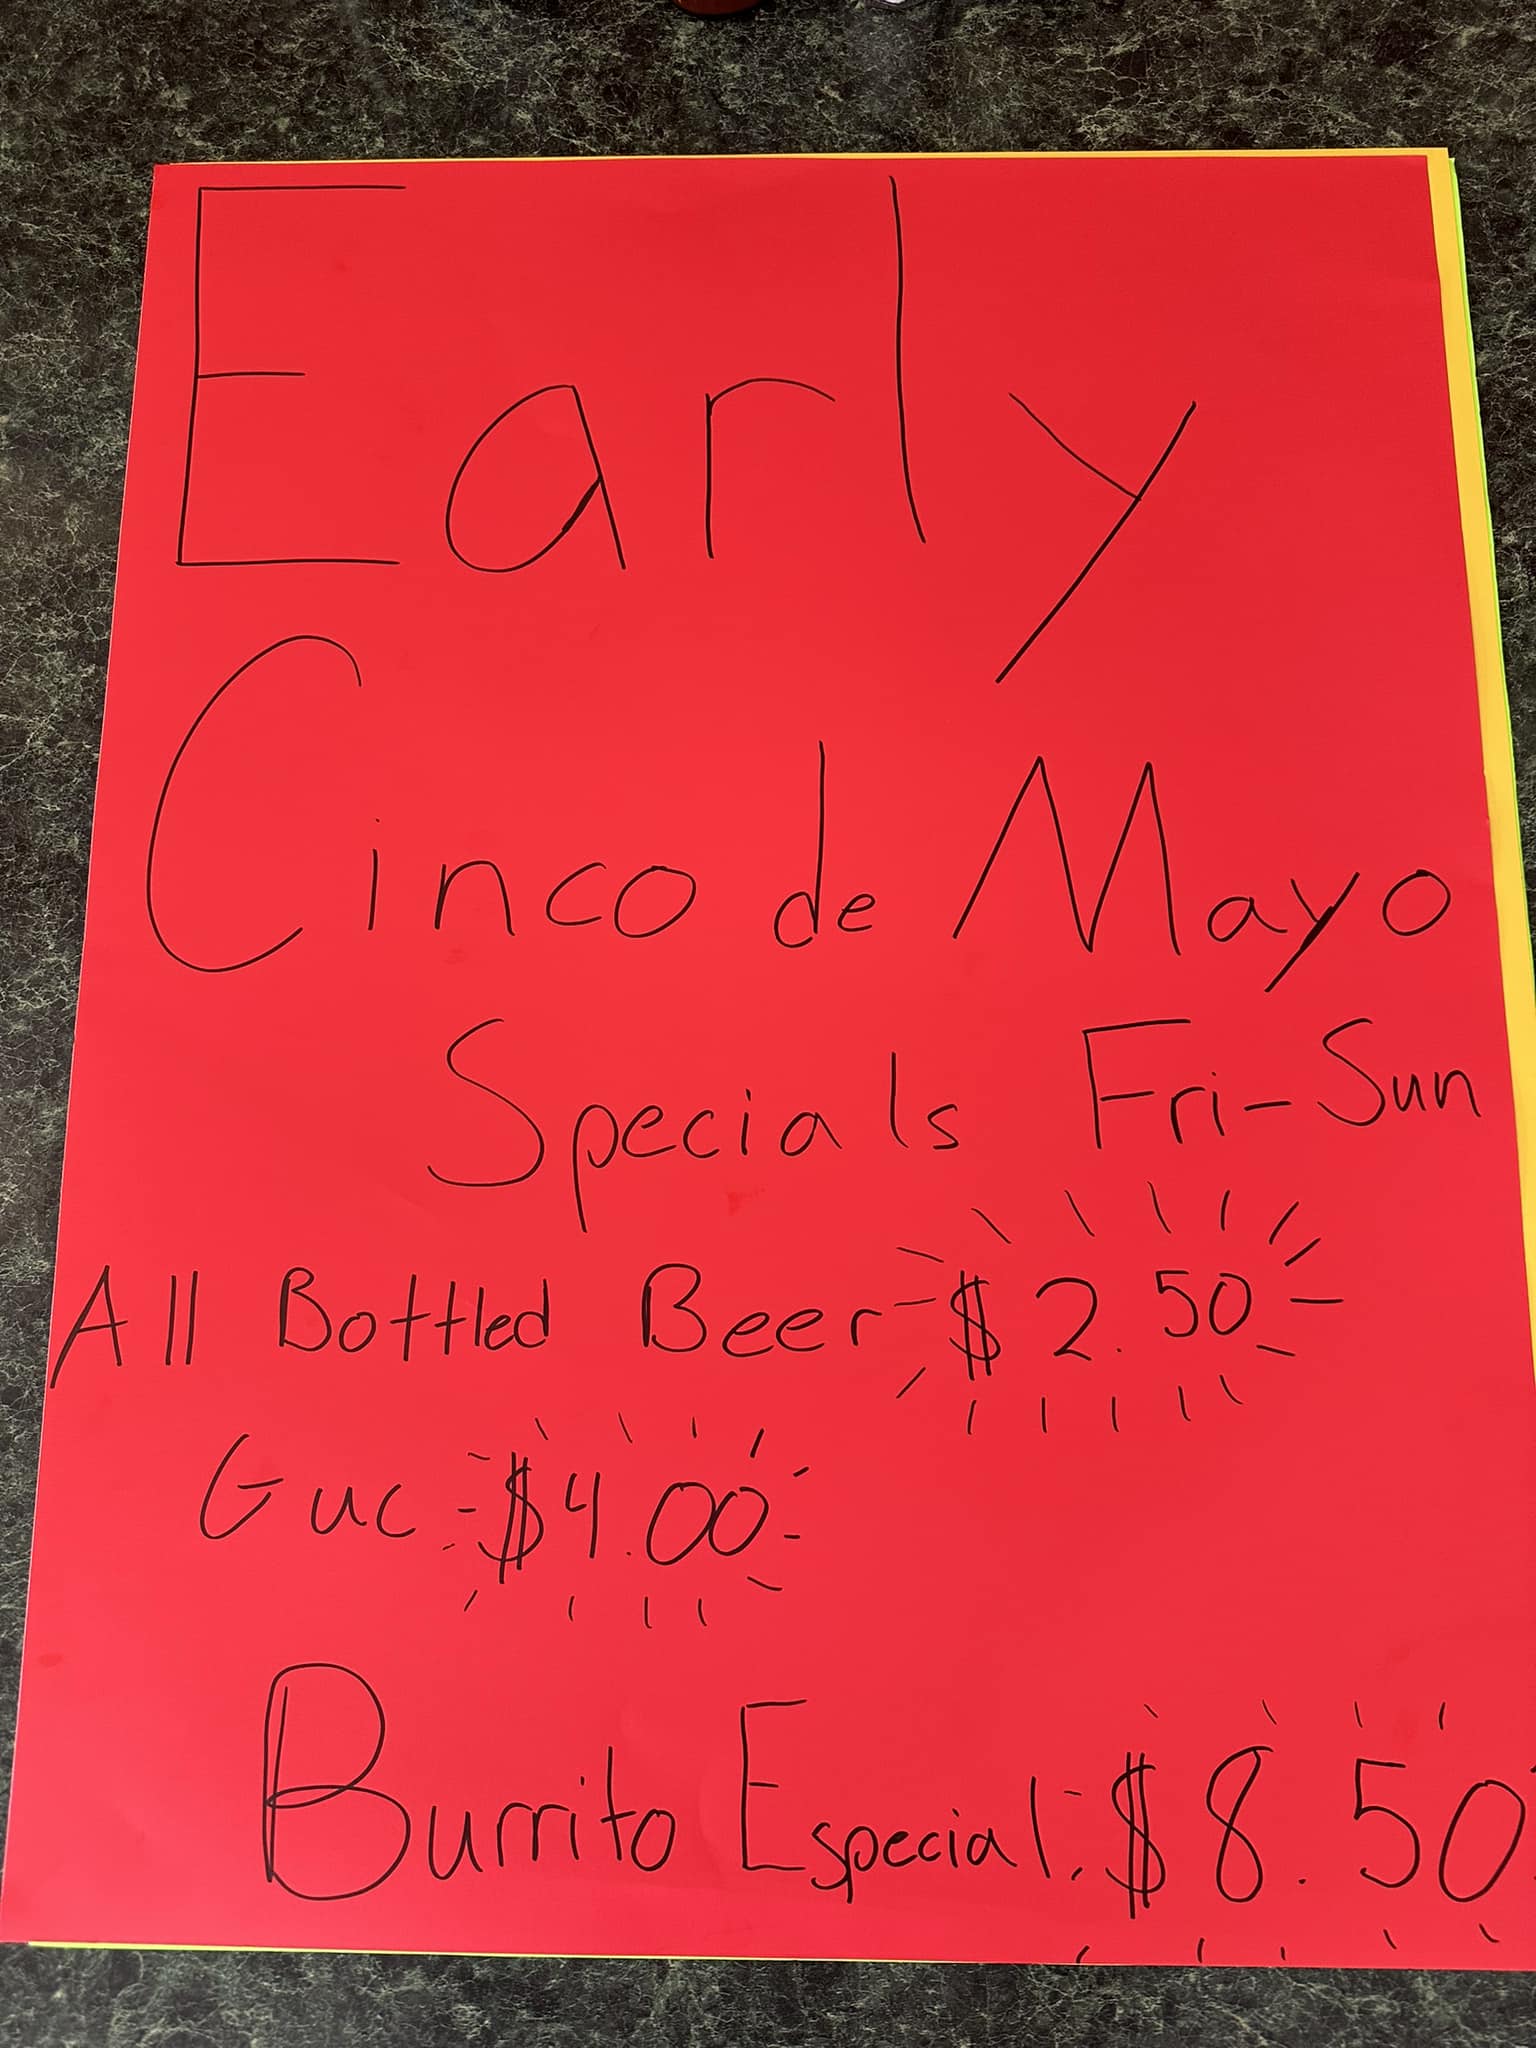 Early
Cinco de Mayo
Specials Fri-Sun
All Bottled Beer $2.50
Guc $4.00
Burrito Especial: $8.50